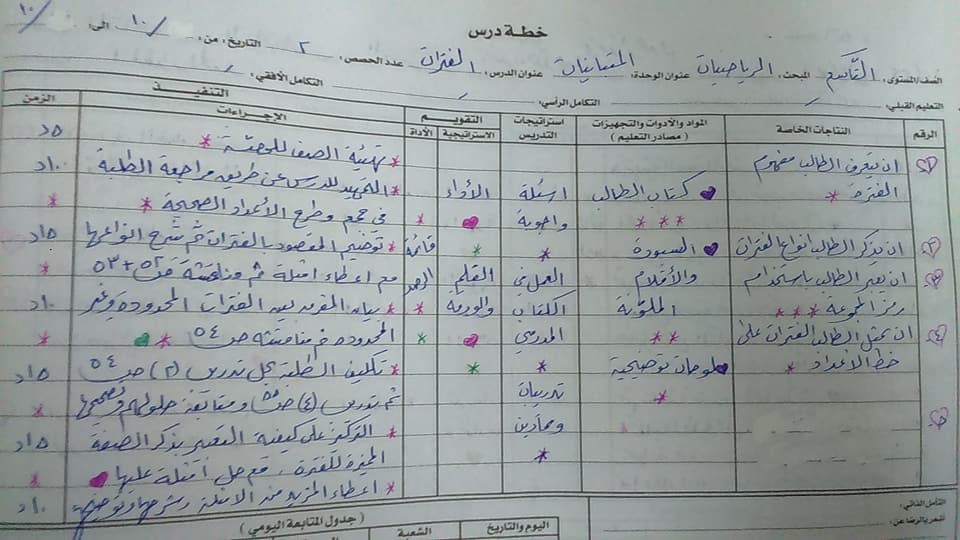 خطة درس
الصف/المستوى: التاسع المبحث: الرياضيات عنوان الوحدة: المتباينات عنوان الدرس: الفترات عدد الحصص: ٢ التاريخ: من: / ١٠ الى: / ١٠
التعليم القبلي: / التكامل الرأسي: / التكامل الأفقي: /
الرقم النتاجات الخاصة المواد والأدوات والتجهيزات ( مصادر التعليم ) استراتيجيات التدريس التقويم الاستراتيجية الأداة التنفيذ الإجراءات الزمن
١ ان يتعرف الطالب مفهوم
الفترة *
٢ ان يذكر الطالب انواع الفترات
٣ ان يعبر الطالب باستخدام
رمز المجموعة ***
٤ ان يمثل الطالب الفترات على
خط الأعداد *
٥
كتاب الطالب
***
السبورة
والأقلام
الملونة
**
لوحات توضيحية
*
اسئلة
واجوبة
*
العمل في
الكتاب
المدرسي
*
تدريبات
وتمارين
*
الأداء
*
القلم
والورقة
*
*
قائمة
الرصد
*
*
* تهيئة الصف للحصة * ٥د
* التمهيد للدرس عن طريق مراجعة الطلبة ١٠د
في جمع وطرح الأعداد الصحيحة * *
* توضيح المقصود بالفترات ثم شرح انواعها ١٥د
مع اعطاء امثلة ثم مناقشة ص٥٢+٥٣ *
* بيان الفرق بين الفترات المحدودة وغير ١٠د
المحدودة ثم مناقشته ص٥٤ * *
* تكليف الطلبة بحل تدريب (٢) ص٥٤ ١٥د
ثم تدريب (٤) ص٥٥ ومتابعة حلولهم وتصحيحها *
* التركيز على كيفية التعبير بذكر الصفة ١٥د
المميزة للفترة، مع حل امثلة عليها *
* اعطاء المزيد من الامثلة وشرحها وتوضيحها ١٠د
التأمل الذاتي:
أشعر بالرضا عن:
( جدول المتابعة اليومي )
اليوم والتاريخ الشعبة